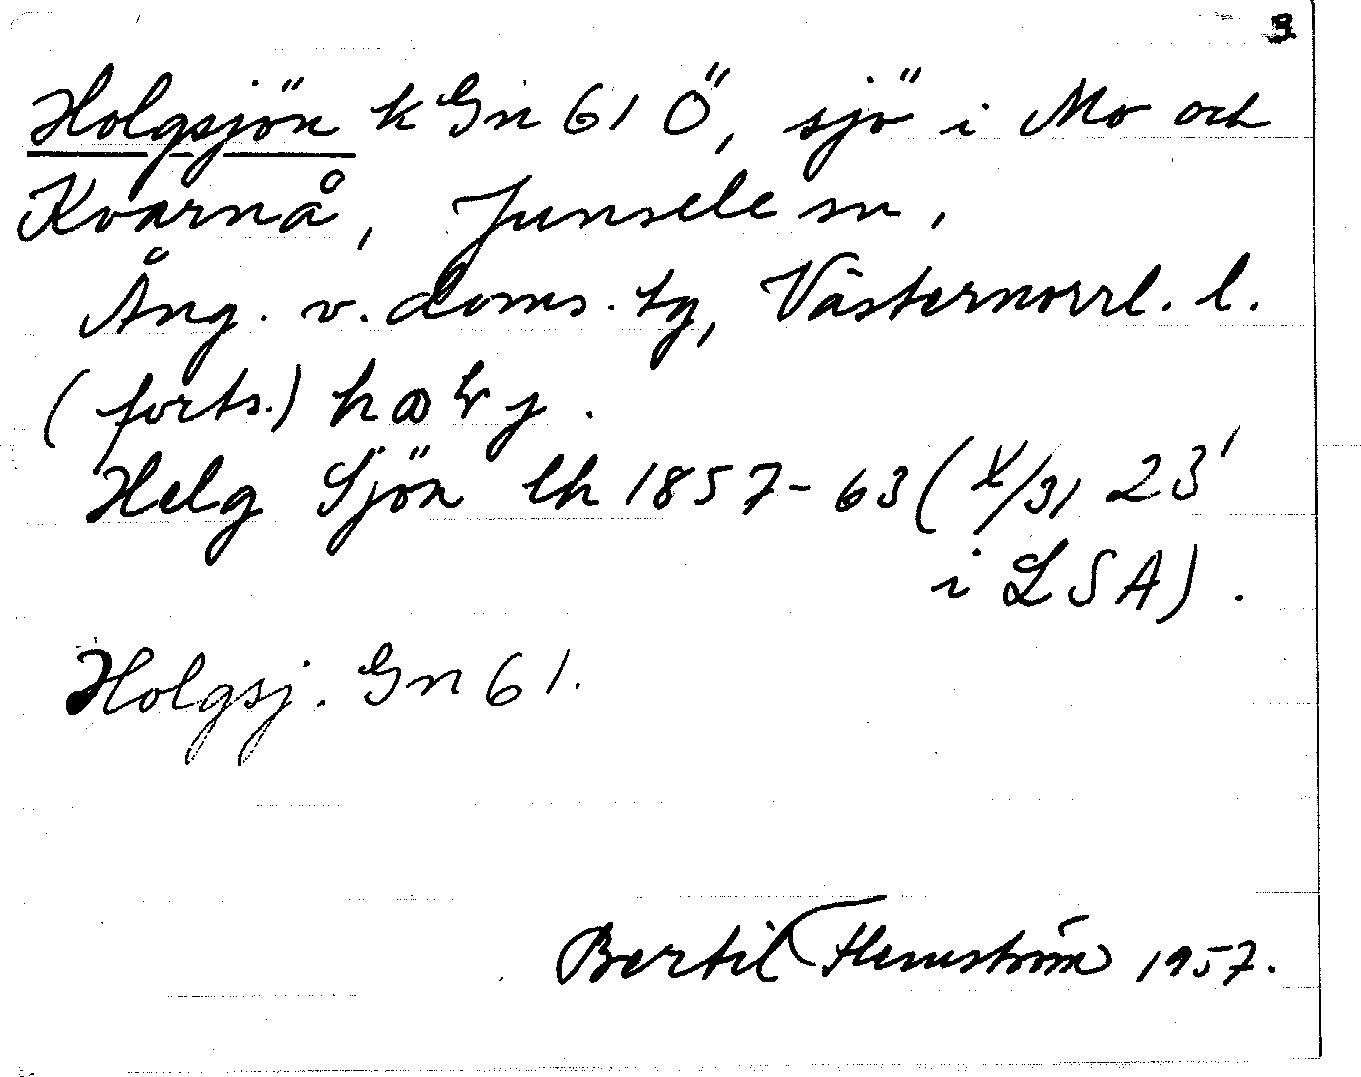 3
Holgsjön k Gn 61 Ö, sjö i Mo och
Kvarnå, Junsele sn,
Ång. v. doms. tg, Västernorrl. l.
(forts.)
Helg Sjön lh 1857-63 (X/31 23'
i LSA).
Holgsj. Gn 61.
Bertil Flemström 1957.